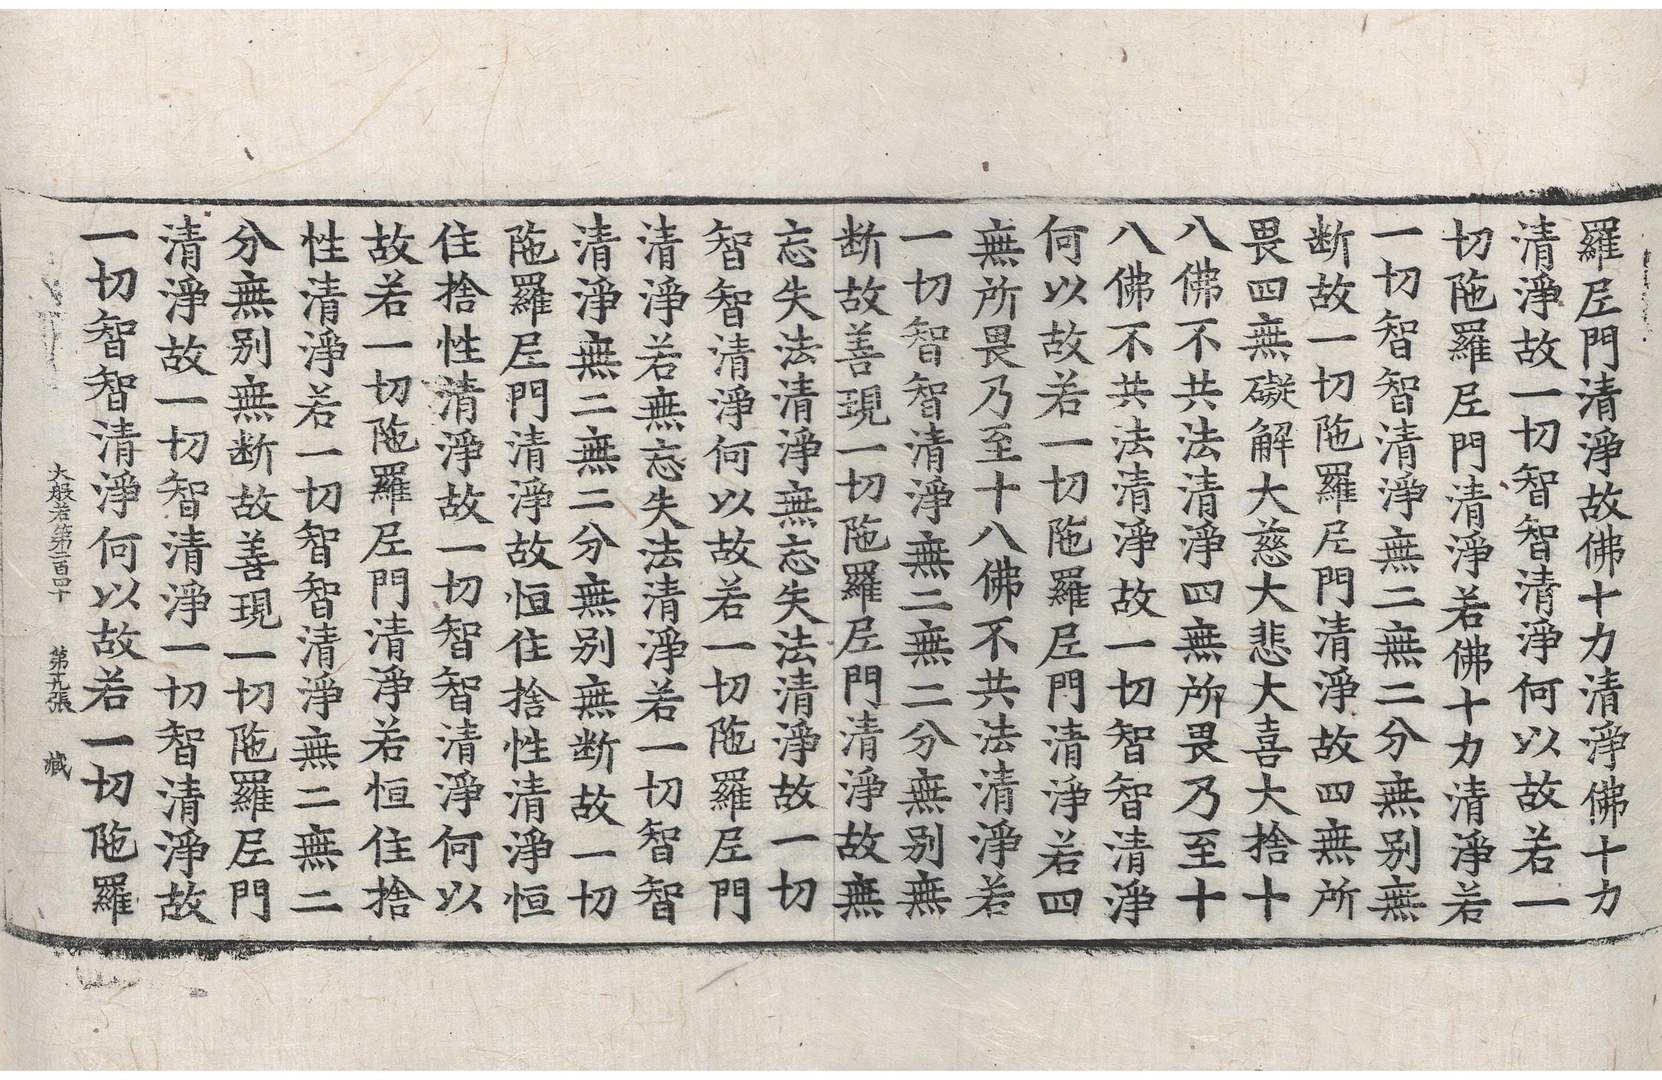 羅尼門清淨故佛十力清淨佛十力
清淨故一切智智清淨何以故若一
切陁羅尼門清淨若佛十力清淨若
一切智智清淨無二無二分無別無
断故一切陁羅尼門清淨故四無所
畏四無礙解大慈大悲大喜大捨十
八佛不共法清淨四無所畏乃至十
八佛不共法清淨故一切智智清淨
何以故若一切陁羅尼門清淨若四
無所畏乃至十八佛不共法清淨若
一切智智清淨無二無二分無別無
断故善現一切陁羅尼門清淨故無
忘失法清淨無忘失法清淨故一切
智智清淨何以故若一切陁羅尼門
清淨若無忘失法清淨若一切智智
清淨無二無二分無別無断故一切
陁羅尼門清淨故恒住捨性清淨恒
住捨性清淨故一切智智清淨何以
故若一切陁羅尼門清淨若恒住捨
性清淨若一切智智清淨無二無二
分無別無断故善現一切陁羅尼門
清淨故一切智清淨一切智清淨故
一切智智清淨何以故若一切陁羅
大般若第二百四十　第九張　藏